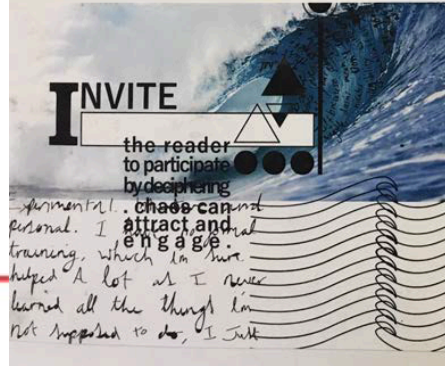 INVITE
the reader
to participate
by deciphering
. chaos can
attract and
engage .
and
personal. I
training, which im sure
helped A lot as I never
learned all the things I'm
not supposed to do, I Just